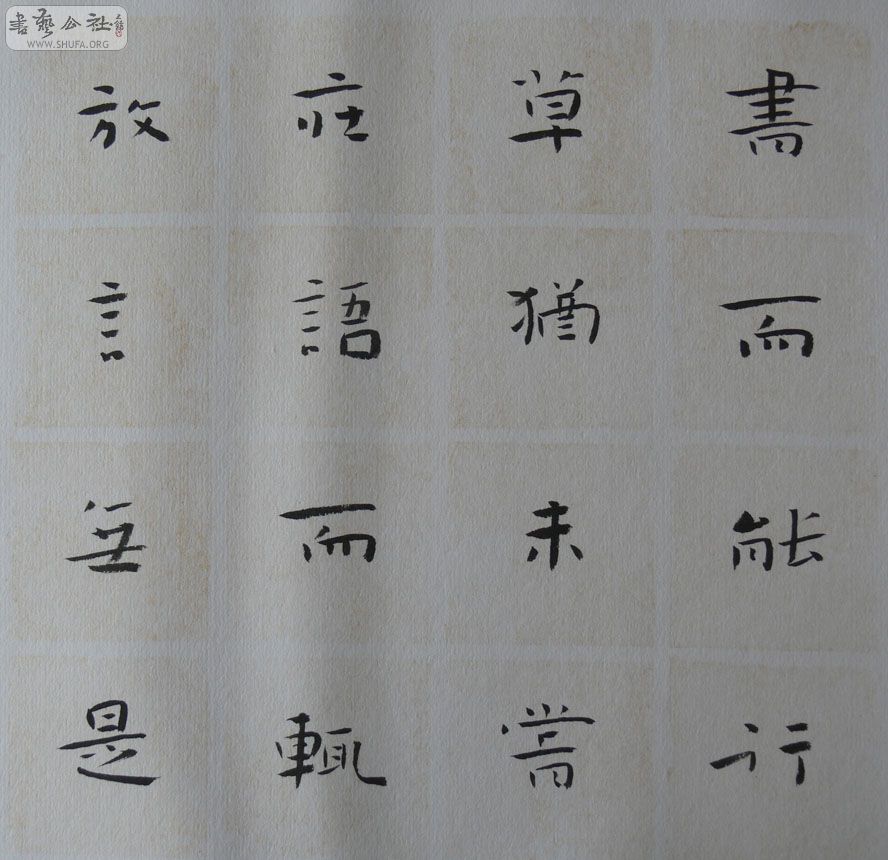 書藝公社
WWW.SHUFA.ORG
書而能行
草猶未嘗
莊語而輒
放言無是